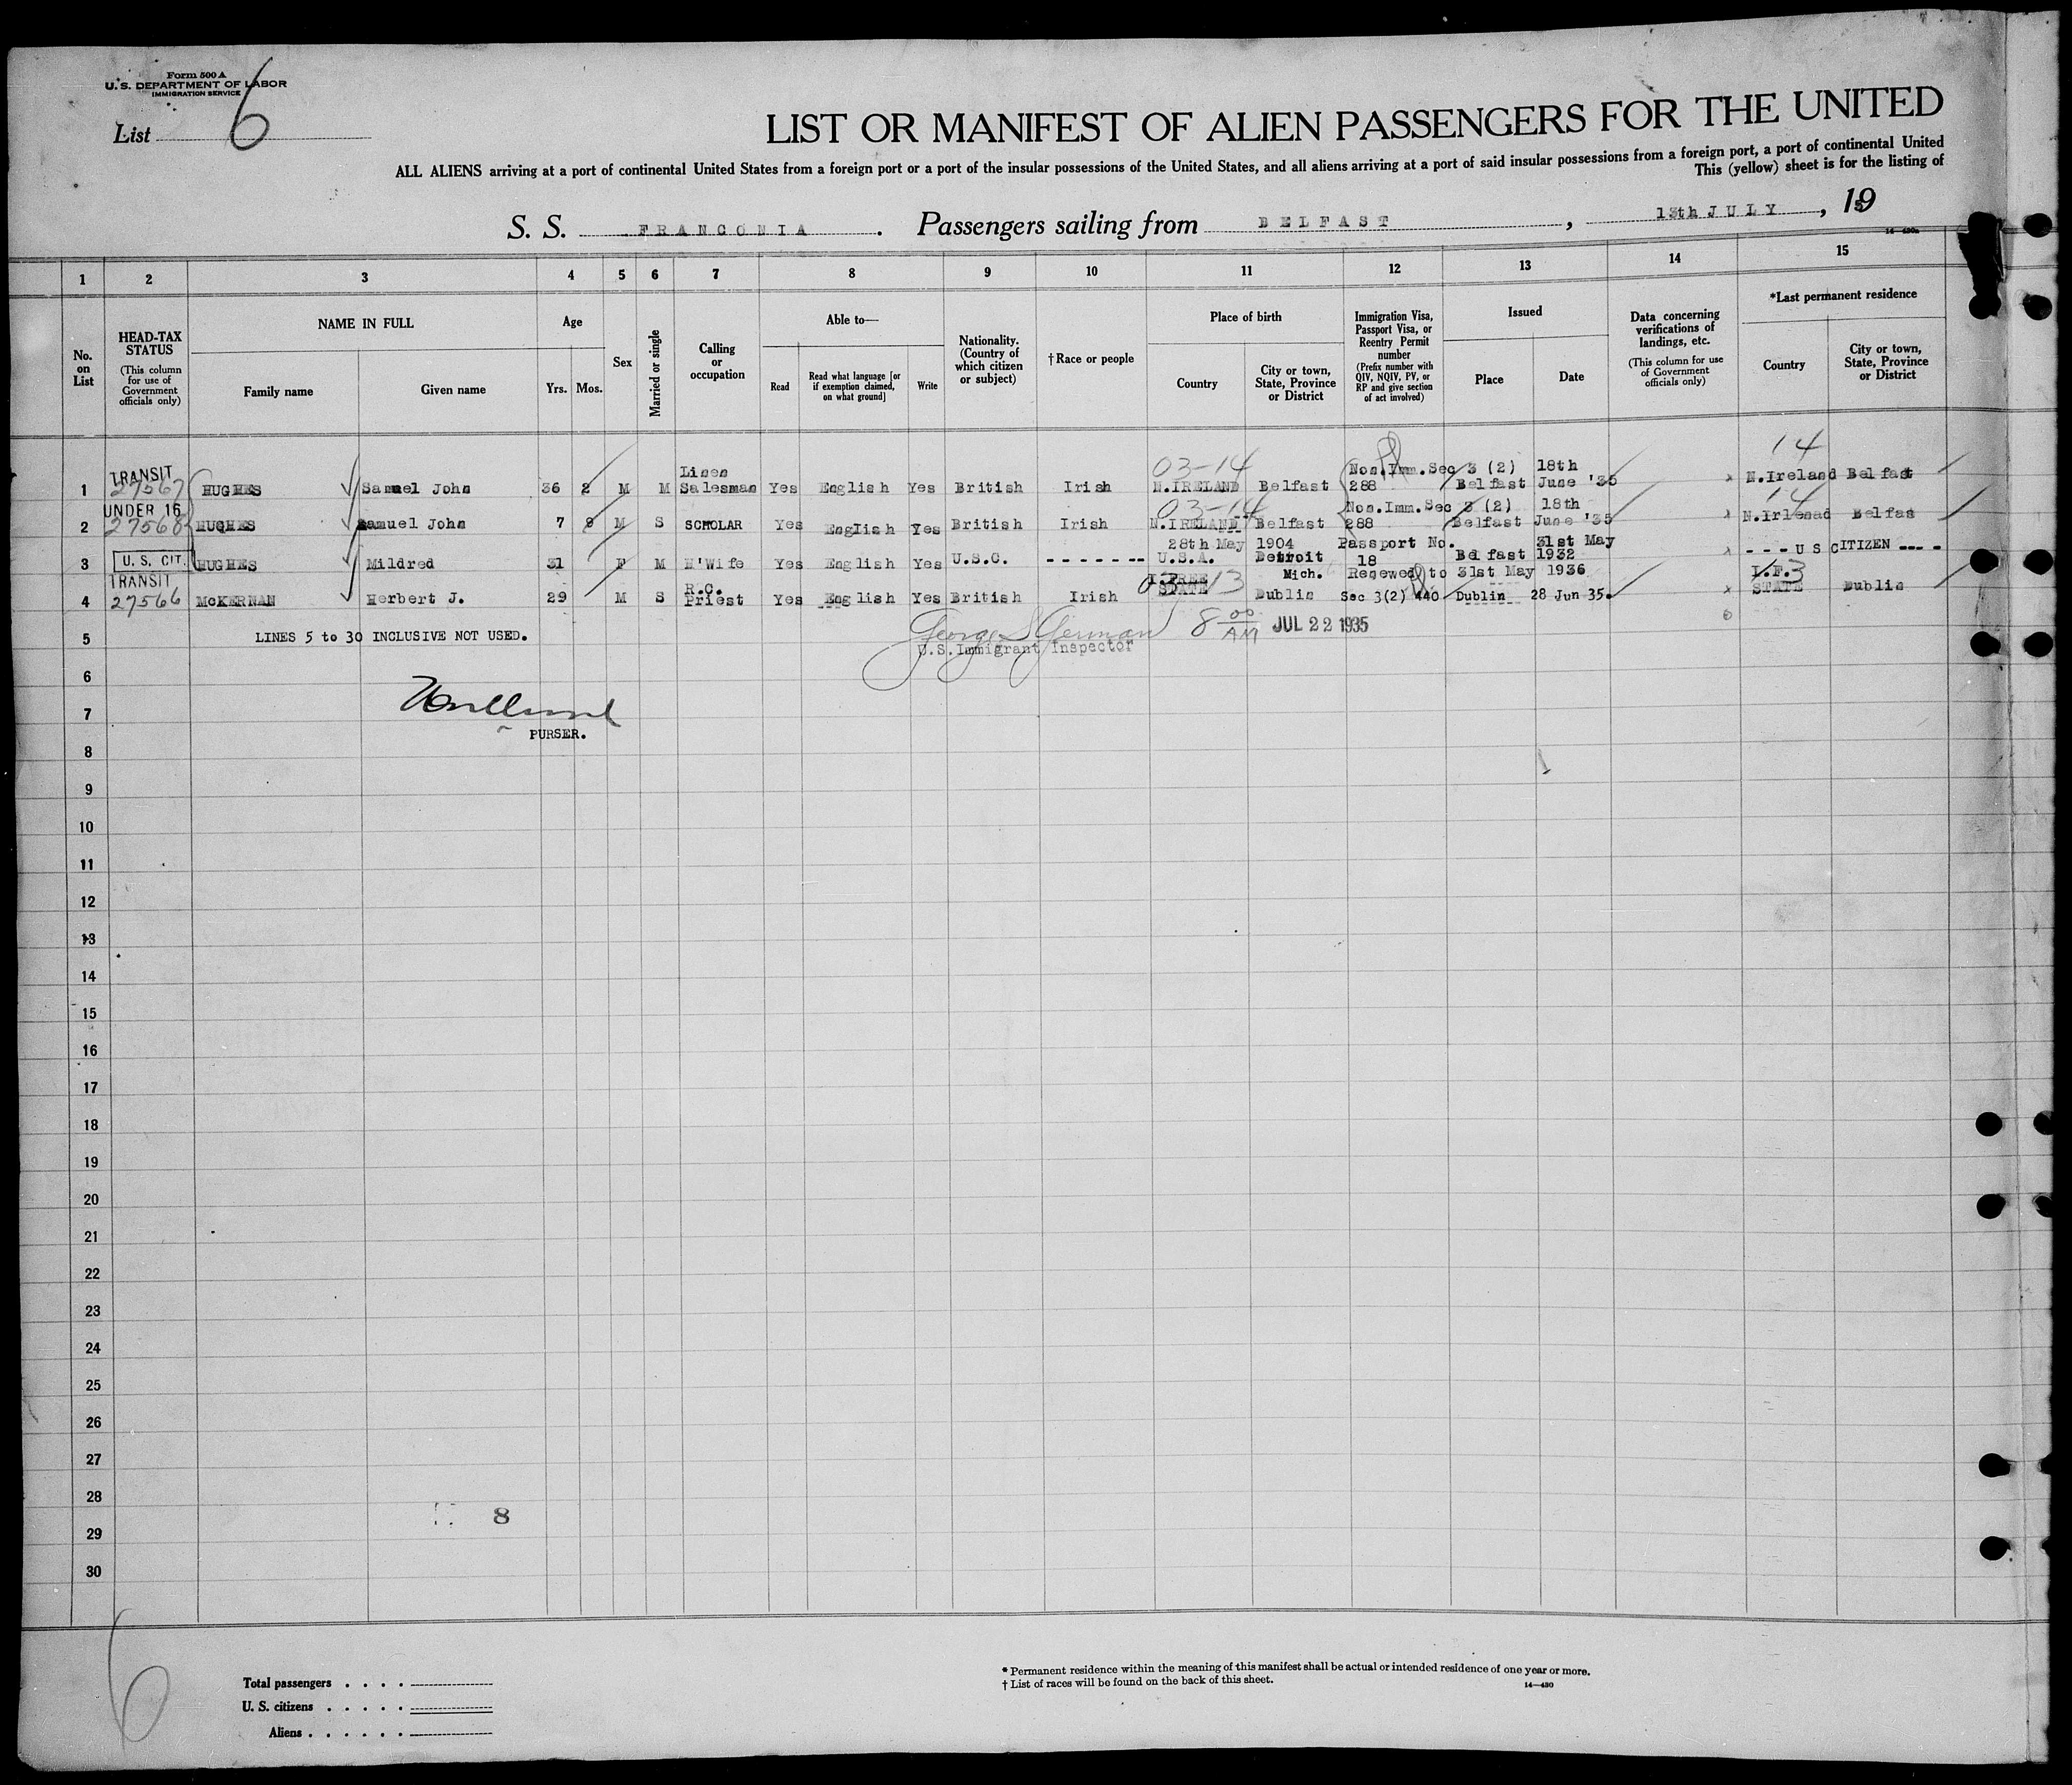 Form 500 A
U. S. DEPARTMENT OF LABOR
IMMIGRATION SERVICE
List 6
LIST OR MANIFEST OF ALIEN PASSENGERS FOR THE UNITED
ALL ALIENS arriving at a port of continental United States from a foreign port or a port of the insular possessions of the United States, and all aliens arriving at a port of said insular possessions from a foreign port, a port of continental United
This (yellow) sheet is for the listing of
S. S. FRANCONIA. Passengers sailing from BELFAST, 13th JULY, 19
14—430a
1 2 3 4 5 6 7 8 9 10 11 12 13 14 15
No. on List
HEAD-TAX STATUS (This column for use of Government officials only)
NAME IN FULL
Family name Given name
Age
Yrs. Mos.
Sex
Married or single
Calling or occupation
Able to—
Read
Read what language [or if exemption claimed, on what ground]
Write
Nationality. (Country of which citizen or subject)
†Race or people
Place of birth
Country
City or town, State, Province or District
Immigration Visa, Passport Visa, or Reentry Permit number (Prefix number with QIV, NQIV, PV, or RP and give section of act involved)
Issued
Place Date
Data concerning verifications of landings, etc. (This column for use of Government officials only)
*Last permanent residence
Country
City or town, State, Province or District
TRANSIT Linen 03-14 Non.Imm.Sec 3 (2) 18th 14
1 27567 HUGHES Samuel John 36 2 M M Salesman Yes English Yes British Irish N.IRELAND Belfast 288 Belfast June '35 N.Ireland Belfast
UNDER 16 03-14 Non.Imm.Sec 3 (2) 18th 14
2 27568 HUGHES Samuel John 7 9 M S SCHOLAR Yes English Yes British Irish N.IRELAND Belfast 288 Belfast June '35 N.Irlenad Belfas
28th May 1904 Passport No. 31st May
3 U. S. CIT. HUGHES Mildred 31 F M H'Wife Yes English Yes U.S.C. - - - - - - - U.S.A. Detroit 18 Belfast 1932 - - - U S CITIZEN - - - -
Mich. Renewed to 31st May 1936
TRANSIT R.C. I.FREE 03 13 I.F. 3
4 27566 McKERNAN Herbert J. 29 M S Priest Yes English Yes British Irish STATE Dublin Sec 3(2) 440 Dublin 28 Jun 35. STATE Dublin
5 LINES 5 to 30 INCLUSIVE NOT USED. George S German 8 00 AM JUL 22 1935
U.S.Immigrant Inspector
6
7
PURSER.
8
9
10
11
12
13
14
15
16
17
18
19
20
21
22
23
24
25
26
27
28
8
29
30
6
Total passengers . . . .
U. S. citizens . . . . .
Aliens . . . . . .
* Permanent residence within the meaning of this manifest shall be actual or intended residence of one year or more.
† List of races will be found on the back of this sheet.
14—430